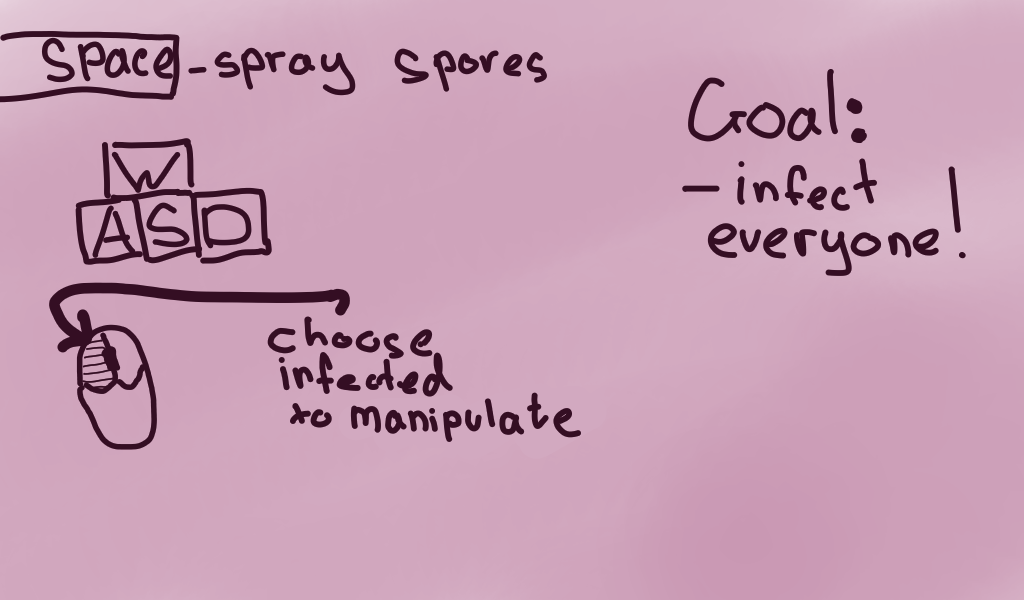 Space - spray spores
W
A S D
choose
infected
to manipulate
Goal:
- infect
everyone!